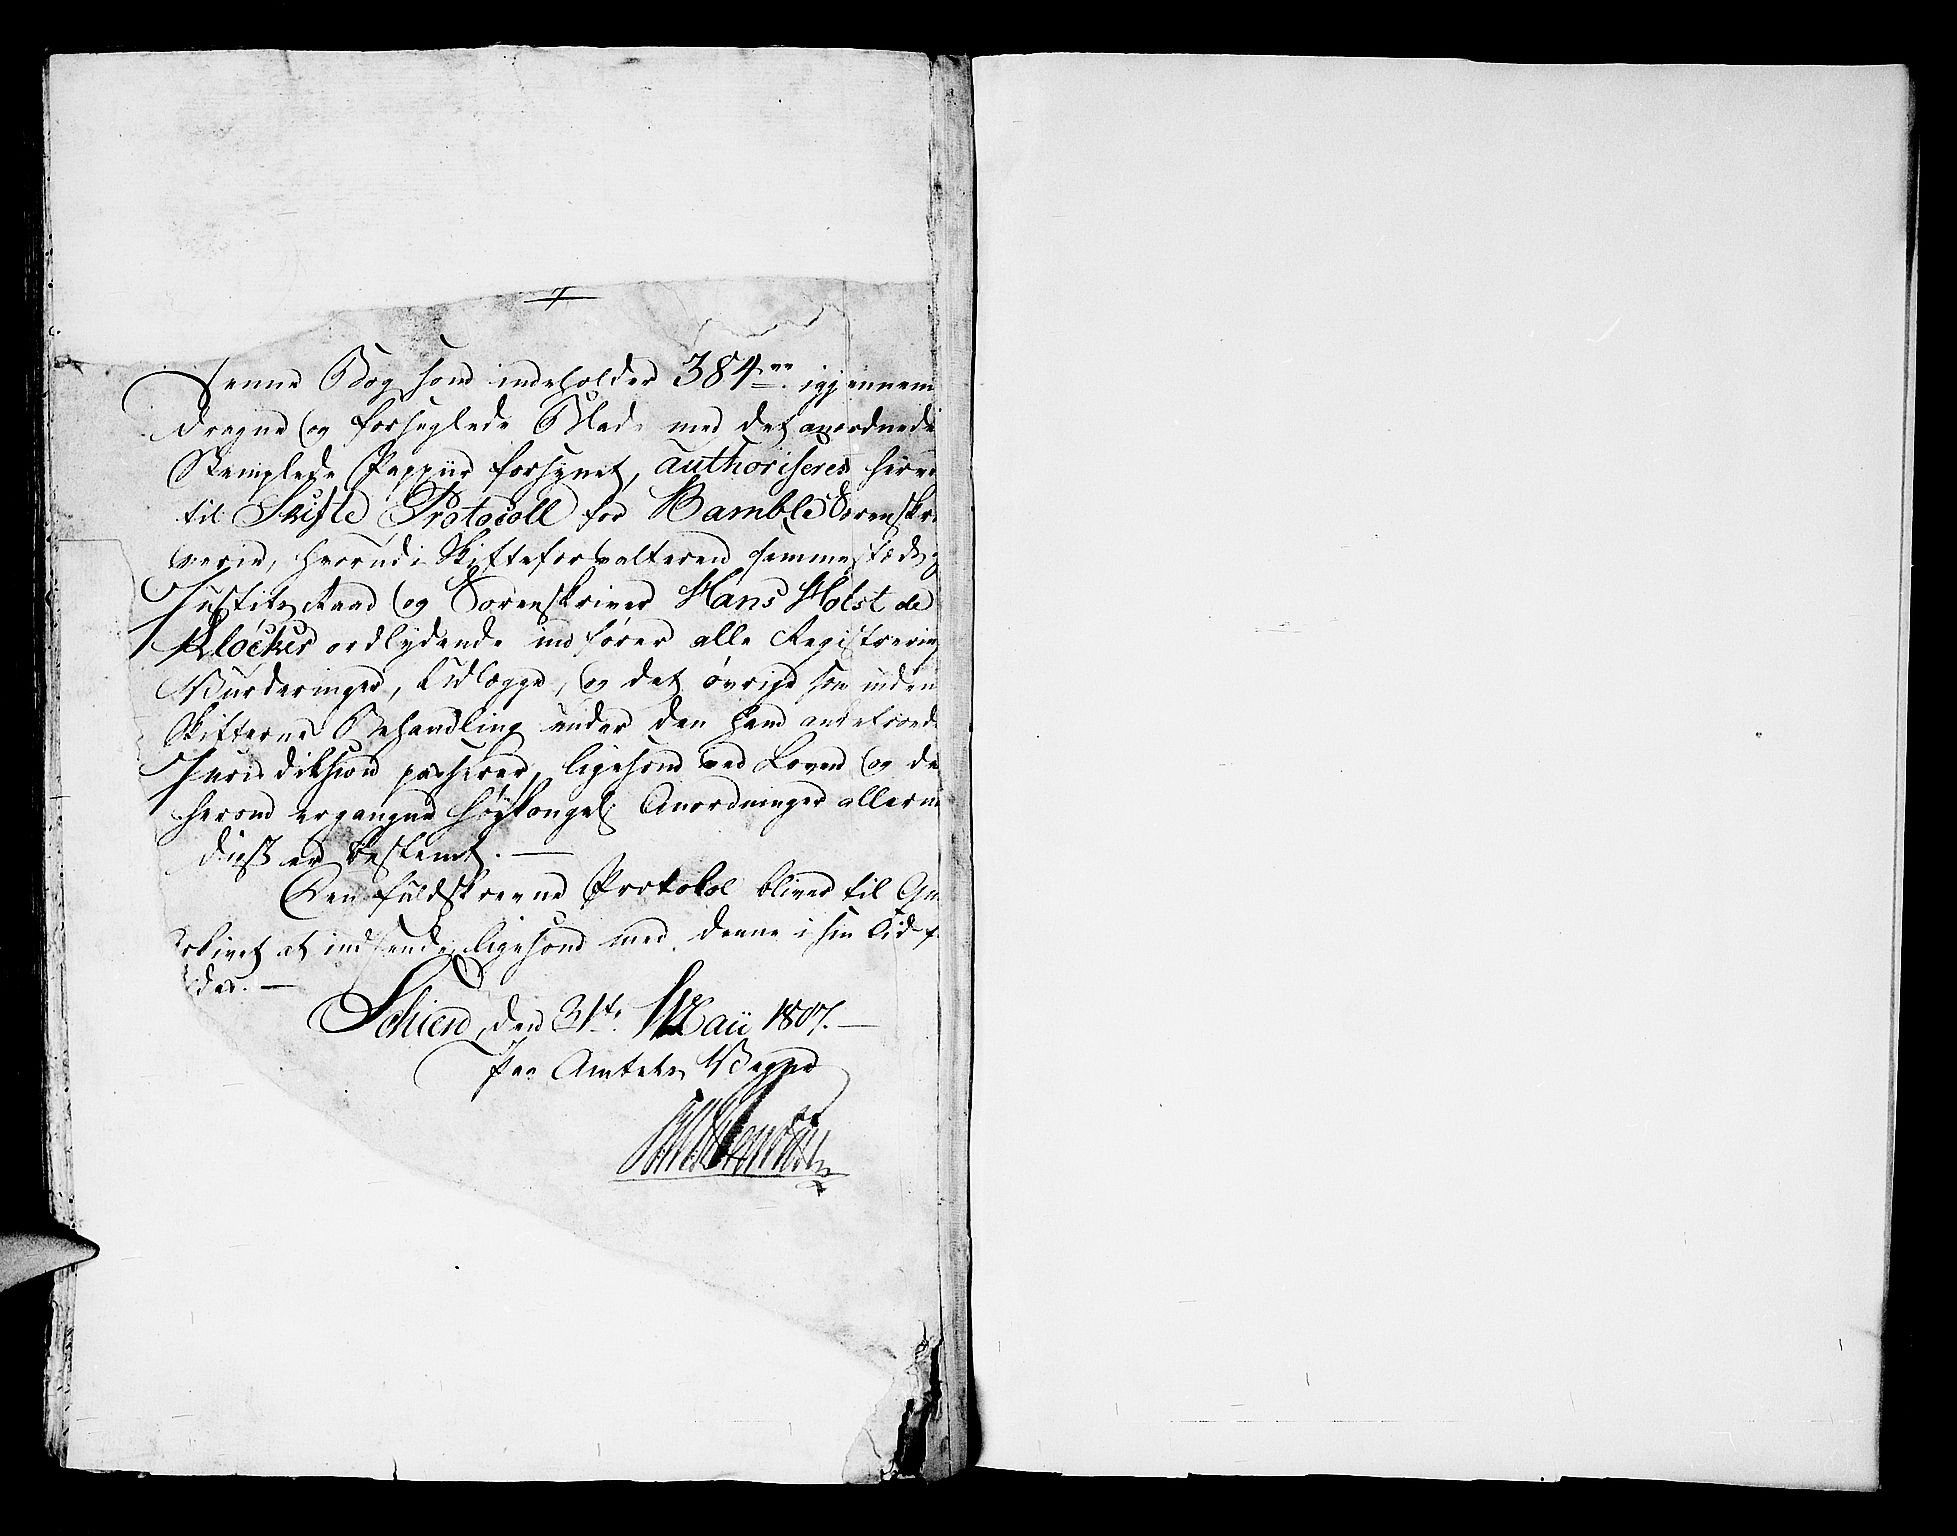 Denne Bog som indeholder 384 igjennem
dragne og forseglede Blade med det anordnede
Stemplede Pappiir forsynet, authoriseres herved
til Skifte Protocoll for Bamble Sorenskri
verie, hvorudi Skifteforvalteren sammestæds
Justits Raad og Sorenskriver Hans Holst de
Klöcker ordlydende indfører alle Registrering
Vurderinger, Udlægge, og det øvrige som inden
Skifterne Behandling under den ham anbetroede
Jurisdiksion passerer, ligesom ved Loven og de
herom ergangne høykongel. Anordninger allernaa
digst er bestemt. —
Den fuldskrevne Protokol bliver til
Arkivet at indsende, ligesom med denne i sin Tid
Schien, den 31te Maii 1807. —
Paa Amtets Vegne